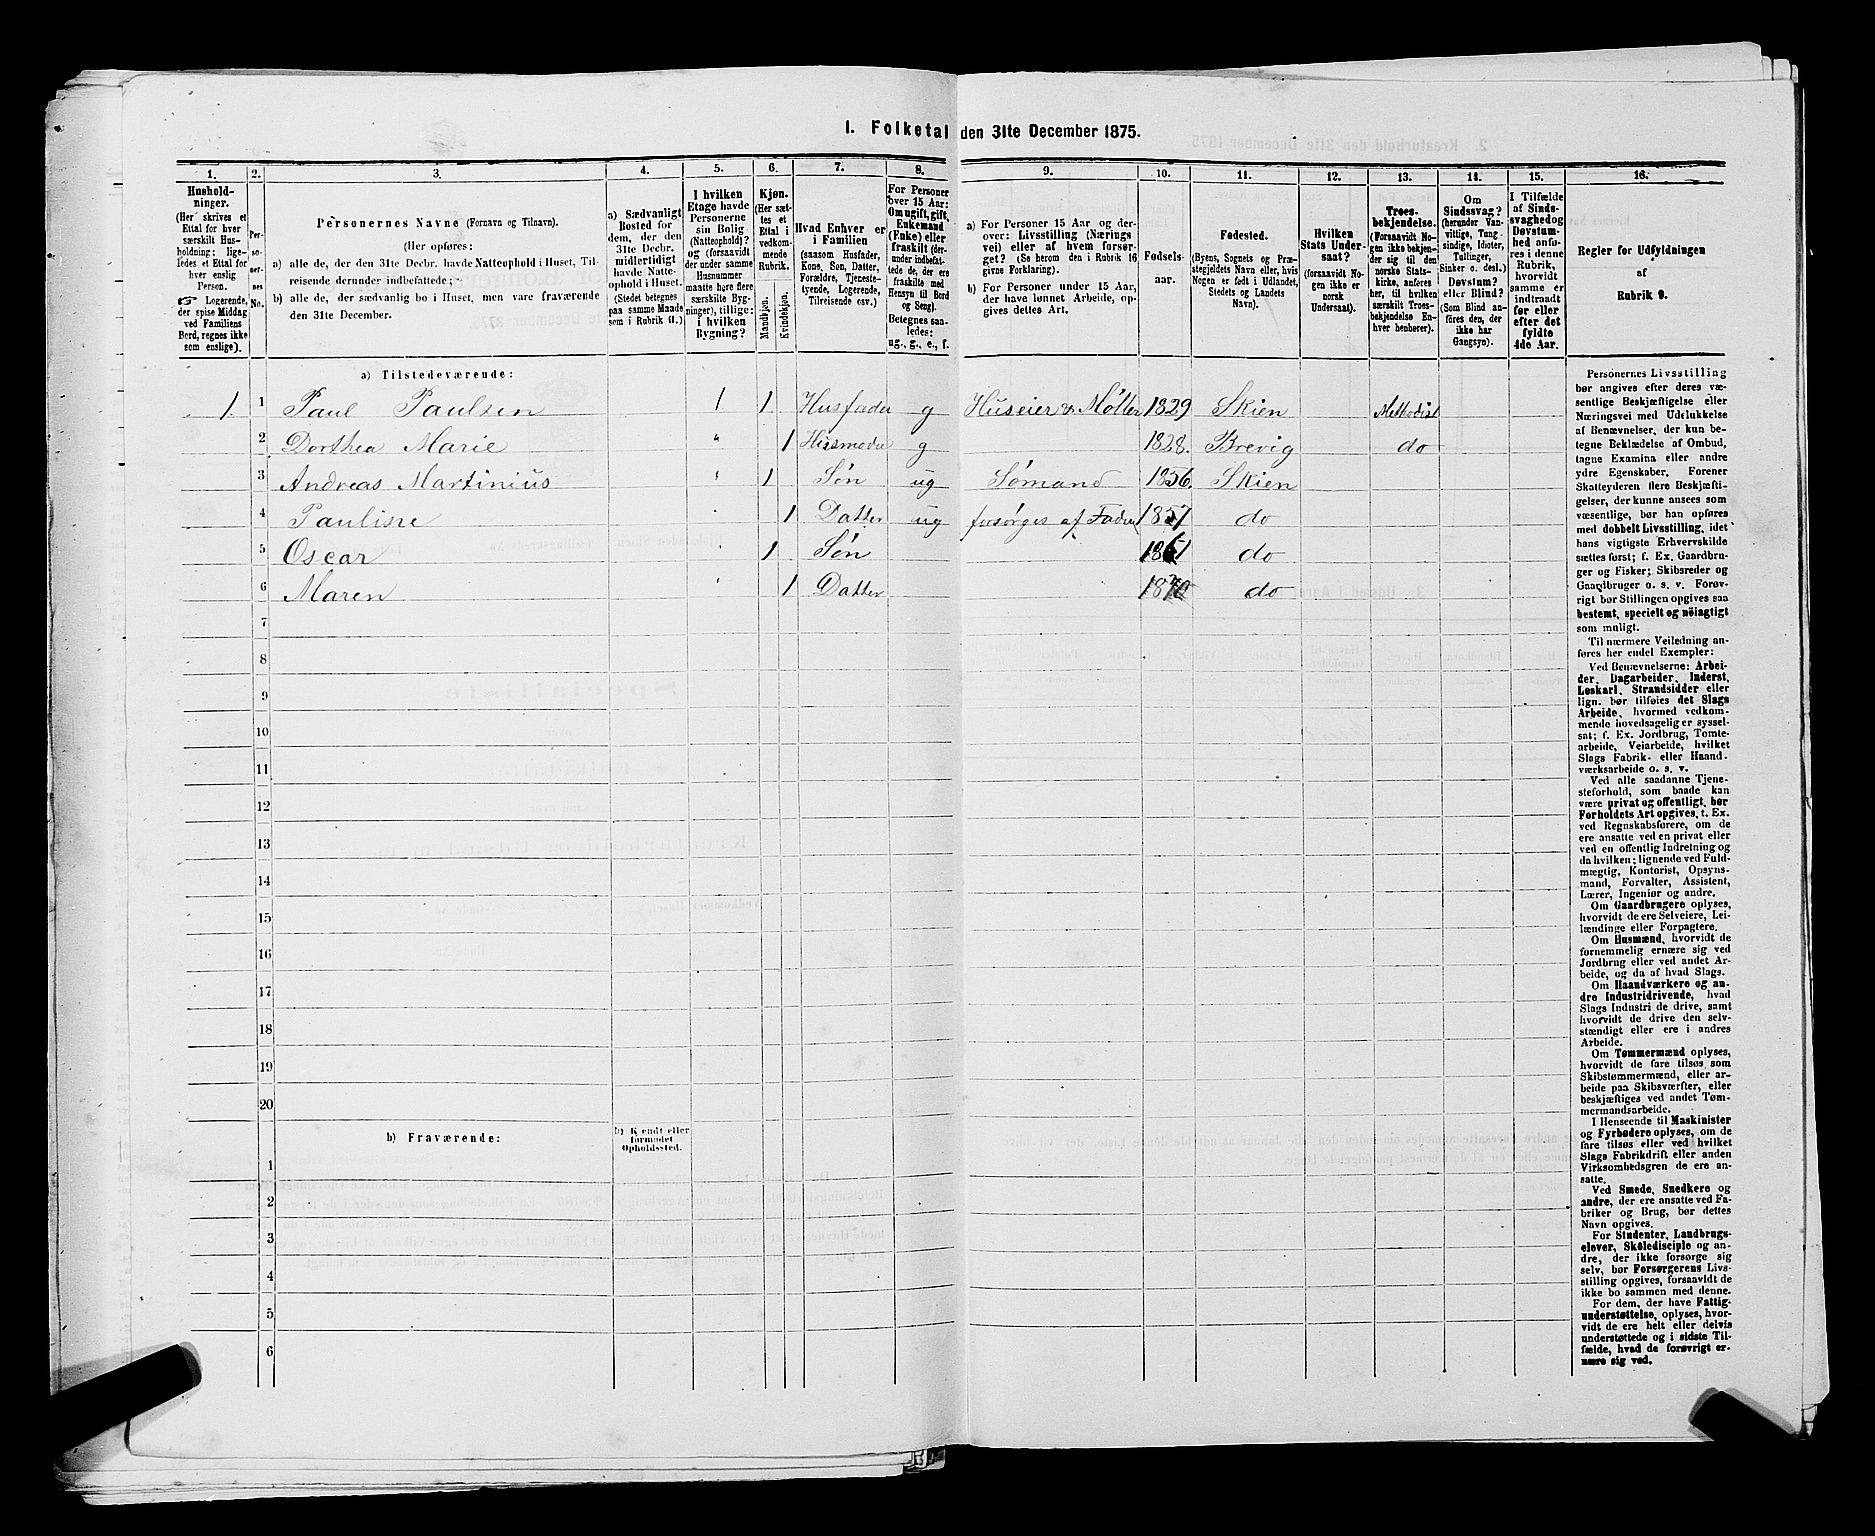 1. Folketal den 31te December 1875.
1. 2. 3. 4. 5. 6. 7. 8. 9. 10. 11. 12. 13. 14. 15. 16.
Hushold-
ninger.
(Her skrives et
Ettal for hver
særskilt Hus-
holdning; lige-
ledes et Ettal for
hver enslig
Person.
☞ Logerende,
der spise Middag
ved Familiens
Bord, regnes ikke
som enslige).
Per-
so-
ner-
nes
No.
Personernes Navne (Fornavn og Tilnavn).
(Her opføres:
a) alle de, der den 31te Decbr. havde Natteophold i Huset, Til-
reisende derunder indbefattede;
b) alle de, der sædvanlig bo i Huset, men vare fraværende
den 31te December.
a) Sædvanligt
Bosted for
dem, der den
31te Decbr.
midlertidigt
havde Natte-
ophold i Huset.
(Stedet betegnes
paa samme Maade
som i Rubrik 11.)
I hvilken
Etage havde
Personerne
sin Bolig
(Natteophold)?
og (forsaavidt
der under samme
Husnummer
maatte høre flere
særskilte Byg-
ninger), tillige:
i hvilken
Bygning?
Kjøn.
(Her sæt-
tes et
Ettal i
vedkom-
mende
Rubrik.
Mandkjøn.
Kvindekjøn.
Hvad Enhver er
i Familien
(saasom Husfader,
Kone, Søn, Datter,
Forældre, Tjeneste-
tyende, Logerende,
Tilreisende osv.)
For Personer
over 15 Aar:
Om ugift, gift,
Enkemand
(Enke) eller
fraskilt (der-
under indbefat-
tede de, der ere
fraskilte med
Hensyn til Bord
og Seng).
Betegnes saa-
ledes:
ug., g., e., f.
a) For Personer 15 Aar og der-
over: Livsstilling (Nærings
vei) eller af hvem forsør-
get? (Se herom den i Rubrik 16
givne Forklaring).
b) For Personer under 15 Aar,
der have lønnet Arbeide, op-
gives dettes Art.
Fødsels-
aar.
Fødested.
(Byens, Sognets og Præ-
stegjeldets Navn eller, hvis
Nogen er født i Udlandet,
Stedets og Landets
Navn).
Hvilken
Stats Under-
saat?
(forsaavidt No-
gen ikke er
norsk
Undersaat).
Troes-
bekjendelse.
(Forsaavidt No-
gen ikke bekjen-
der sig til den
norske Stats-
kirke, anføres
her, til hvilken
særskilt Troes-
bekjendelse En-
hver henhører).
Om
Sindssvag?
(herunder Van-
vittige, Tung-
sindige, Idioter,
Tullinger,
Sinker o. desl.)
Døvstum?
eller Blind?
(Som Blind an-
føres den, der
ikke har
Gangsyn).
I Tilfælde
af Sinds-
svaghed og
Døvstum-
hed anfø-
res i denne
Rubrik,
hvorvidt
samme er
indtraadt
før eller
efter det
fyldte
4de Aar.
Regler for Udfyldningen
af
Rubrik 9.
a) Tilstedeværende:
1. 1 Paul Paulsen 1 1 Husfader g Huseier & Møller 1829 Skien Methodist
2 Dorthea Marie " 1 Husmoder g 1828. Brevig do
3 Andreas Martinius " 1 Søn ug Sømand 1856. Skien
4 Pauline " 1 Datter ug forsørges af Fader 1857 do
5 Oscar " 1 Søn 1861 do
6 Maren " 1 Datter 1870 do
7
8
9
10
11
12
13
14
15
16
17
18
19
20
b) Fraværende: b) Kjendt eller
formodet
Opholdssted.
1
2
3
4
5
6
Personernes Livsstilling
bør angives efter deres væ-
sentlige Beskjæftigelse eller
Næringsvei med Udelukkelse
af Benævnelser, der kun be-
tegne Beklædelse af Ombud,
tagne Examina eller andre
ydre Egenskaber. Forener
Skatteyderen flere Beskjæfti-
gelser, der kunne ansees som
væsentlige, bør han opføres
med dobbelt Livsstilling, idet
hans vigtigste Erhvervskilde
sættes først; f. Ex. Gaardbru-
ger og Fisker; Skibsreder og
Gaardbruger o. s. v. Forøv-
rigt bør Stillingen opgives saa
bestemt, specielt og nøiagtigt
som muligt.
Til nærmere Veiledning an-
føres her endel Exempler:
Ved Benævnelserne: Arbei-
der, Dagarbeider, Inderst,
Løskarl, Strandsidder eller
lign. bør tilføies det Slags
Arbeide, hvormed vedkom-
mende hovedsagelig er syssel-
sat; f. Ex. Jordbrug, Tomte-
arbeide, Veiarbeide, hvilket
Slags Fabrik- eller Haand-
værksarbeide o. s. v.
Ved alle saadanne Tjene-
steforhold, som baade kan
være privat og offentligt, bør
Forholdets Art opgives, t. Ex.
ved Regnskabsførere, om de
ere ansatte ved en privat eller
ved en offentlig Indretning og
da hvilken; lignende ved Fuld-
mægtig, Kontorist, Opsyns-
mand, Forvalter, Assistent,
Lærer, Ingeniør og andre.
Om Gaardbrugere oplyses,
hvorvidt de ere Selveiere, Lei-
lændinge eller Forpagtere.
Om Husmænd, hvorvidt de
fornemmelig ernære sig ved
Jordbrug eller ved andet Ar-
beide, og da af hvad Slags.
Om Haandværkere og an-
dre Industridrivende, hvad
Slags Industri de drive, samt
hvorvidt de drive den selv-
stændigt eller ere i andres
Arbeide.
Om Tømmermænd oplyses,
hvorvidt de fare tilsøs som
Skibstømmermænd, eller ar-
beide paa Skibsværfter, eller
beskjæftiges ved andet Tøm-
mermandsarbeide.
I Henseende til Maskinister
og Fyrbødere oplyses, om de
fare tilsøs eller ved hvilket
Slags Fabrikdrift eller anden
Virksomhedsgren de ere an-
satte.
Ved Smede, Snedkere og
andre, der ere ansatte ved Fa-
briker og Brug, bør dettes
Navn opgives.
For Studenter, Landbrugs-
elever, Skoledisciple og an-
dre, der ikke forsørge sig
selv, bør Forsørgerens Livs-
stilling opgives, forsaavidt de
ikke bo sammen med denne.
For dem, der have Fattig-
understøttelse, oplyses, hvor-
vidt de ere helt eller delvis
understøttede og i sidste Til-
fælde, hvad de forøvrigt er-
nære sig ved.